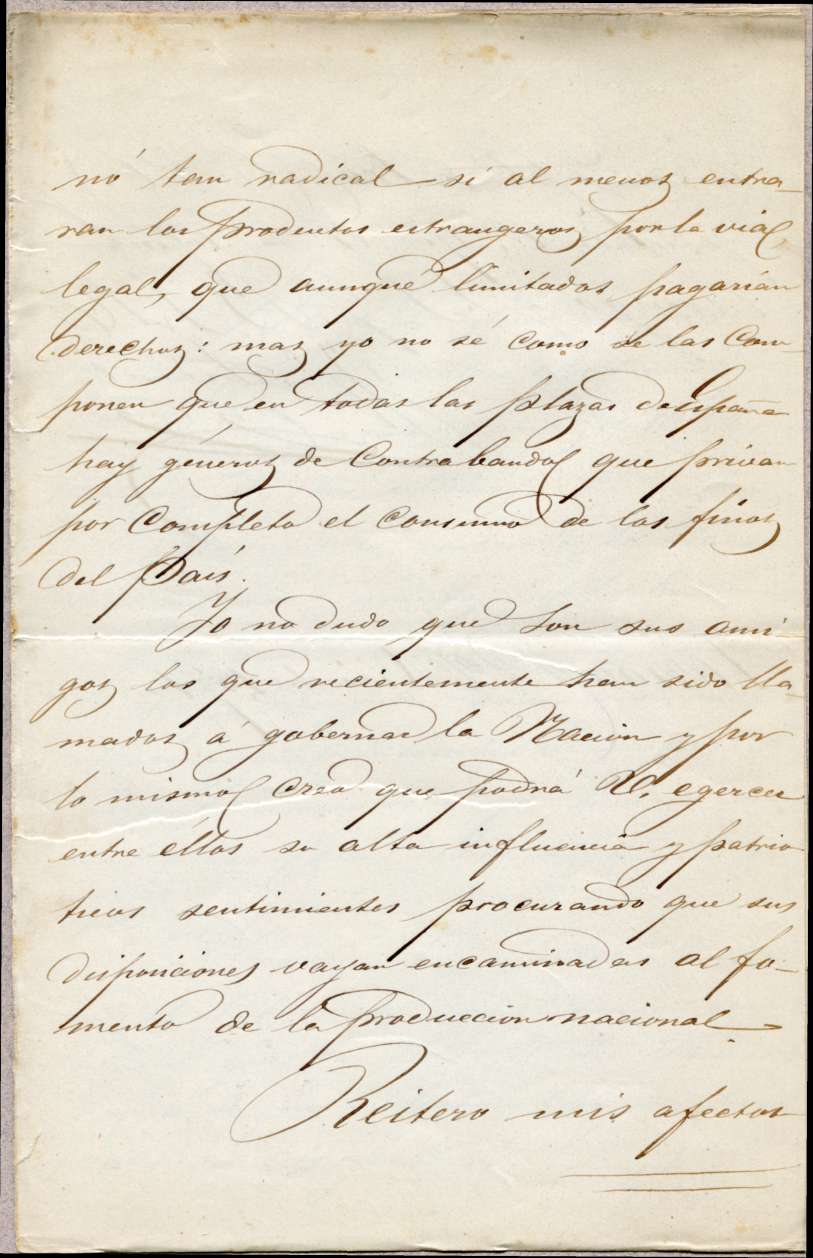 nó tan radical si al menos entra-
ran los productos estrangeros por la via
legal, que aunque limitados pagarían
derechos: mas yo no sé como se las com-
ponen que en todas las plazas de España
hay géneros de Contrabando que privan
por completo el consumo de los finos
del País.
Yo no dudo que son sus ami-
gos los que recientemente han sido lla-
mados á gobernar la Nación y por
lo mismo creo que podrá V. egercer
entre éllos su alta influencia y patrio
ticos sentimientos procurando que sus
disposiciones vayan encaminadas al fo-
mento de la producción nacional
Reitero mis afectos